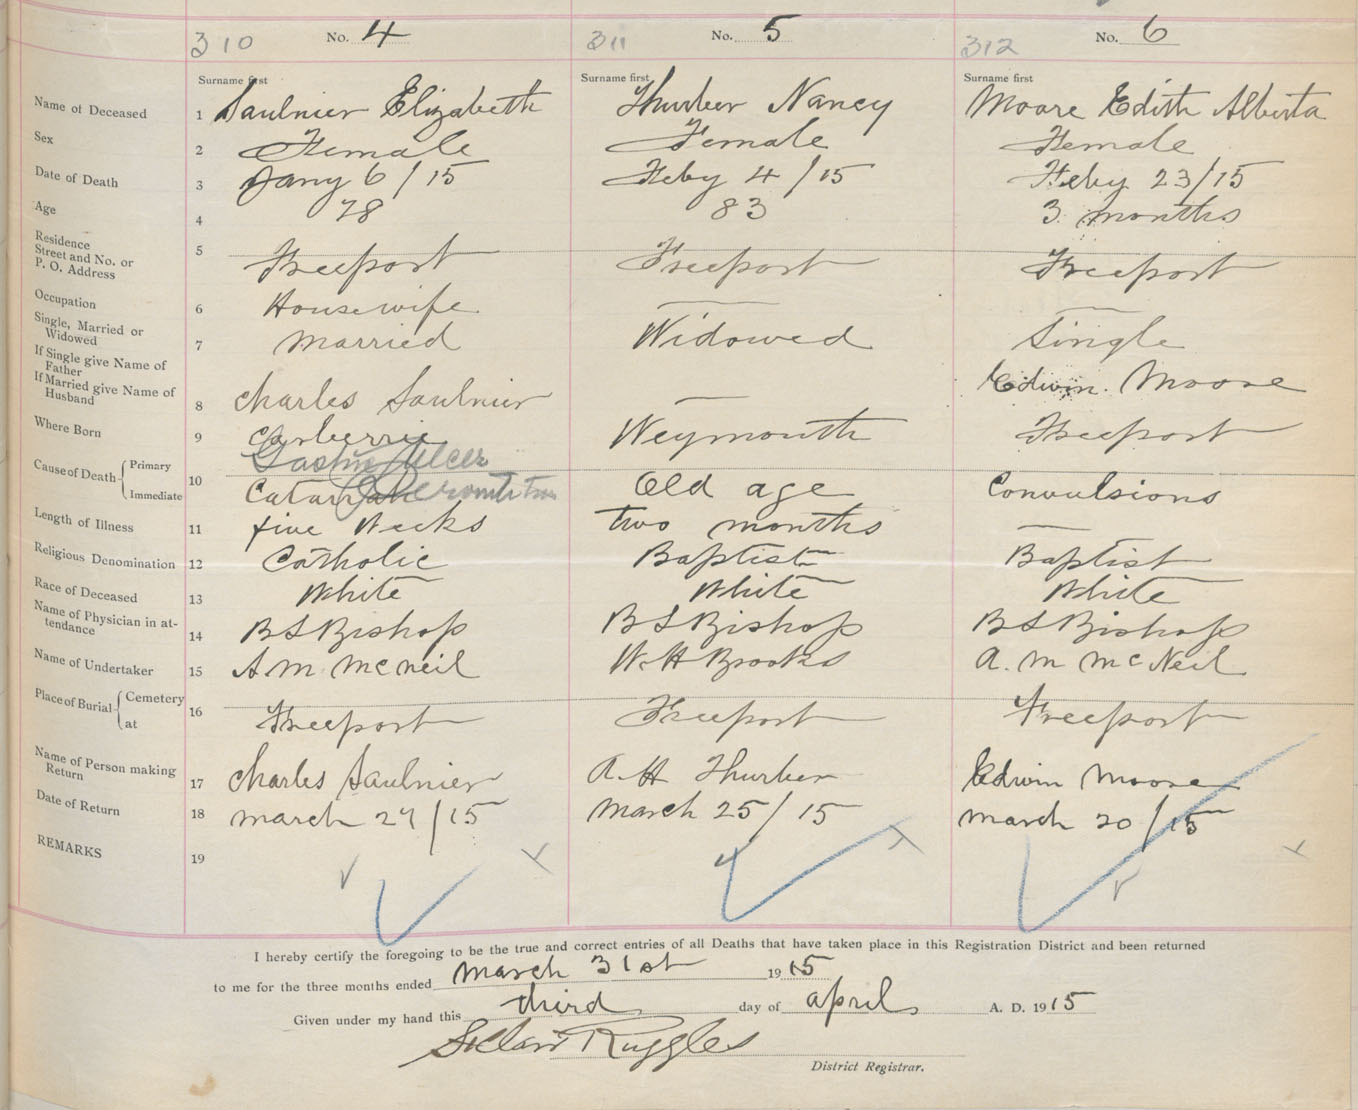 310 No. 4 311 No. 5 312 No. 6
Surname first Surname first Surname first
Name of Deceased 1 Saulnier Elizabeth Thurber Nancy Moore Edith Alberta
Sex 2 Female Female Female
Date of Death 3 Jany 6/15 Feby 4/15 Feby 23/15
Age 4 78 83 3 months
Residence
Street and No. or
P. O. Address 5 Freeport Freeport Freeport
Occupation 6 Housewife — —
Single, Married or
Widowed 7 Married Widowed Single
If Single give Name of
Father
If Married give Name of
Husband 8 Charles Saulnier — Edwin Moore
Where Born 9 Weymouth Freeport
Cause of Death { Primary Gastric Ulcer
Immediate 10 Old age Convulsions
Length of Illness 11 five Weeks two months —
Religious Denomination 12 Catholic Baptist Baptist
Race of Deceased 13 White White White
Name of Physician in at-
tendance 14 B S Bishop B S Bishop B S Bishop
Name of Undertaker 15 A. M McNeil W. H Brooks A. M McNeil
Place of Burial { Cemetery
at 16 Freeport Freeport Freeport
Name of Person making
Return 17 Charles Saulnier A. H Thurber Edwin Moore
Date of Return 18 March 27/15 March 25/15 March 20/15
REMARKS 19
I hereby certify the foregoing to be the true and correct entries of all Deaths that have taken place in this Registration District and been returned
to me for the three months ended March 31st 1915
Given under my hand this third day of April A. D. 1915
Ruggles
District Registrar.